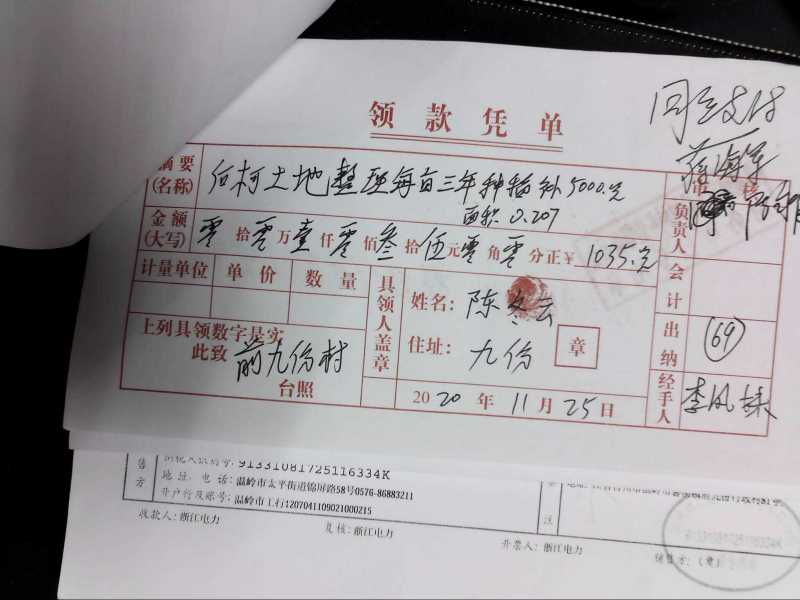 领款凭单
同意支付
蒋海军
摘要
(名称)
伯柯土地整理每亩三年种植补5000.元
面积0.207
审核
金额
(大写)
零拾零万壹仟零佰叁拾伍元零角零分正¥1035.元
负责人
计量单位 单价 数量
具领人盖章
姓名：陈冬云
会计
上列具领数字是实
此致 前九份村
台照
住址：九份
章
出纳
(69)
2020年11月25日
经手人
李凤妹
售
方
91331081725116334K
地址、电话：温岭市太平街道锦屏路58号0576-86883211
开户行及账号：温岭市工行1207041109021000215
注
收款人：浙江电力
复核：浙江电力
开票人：浙江电力
销售方：(章)
91331081725116334K